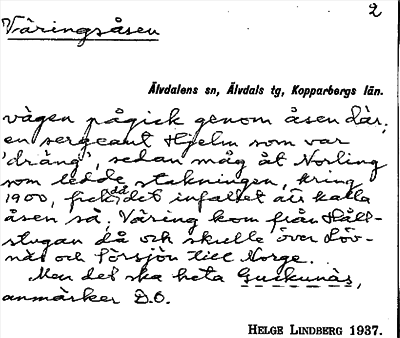 2
Väringsåsen
Älvdalens sn, Älvdals tg, Kopparbergs län.
vägen pågick genom åsen där,
en sergeant Hjelm som var
'dräng', sedan måg åt Norling
som ledde stakningen, kring
1900, fick då det infallet att kalla
åsen så; Väring kom från Håll-
stugan då och skulle över Löv-
näs och Försjön till Norge.
Men det ska heta Guckunäs,
anmärker D.O.
HELGE LINDBERG 1937.